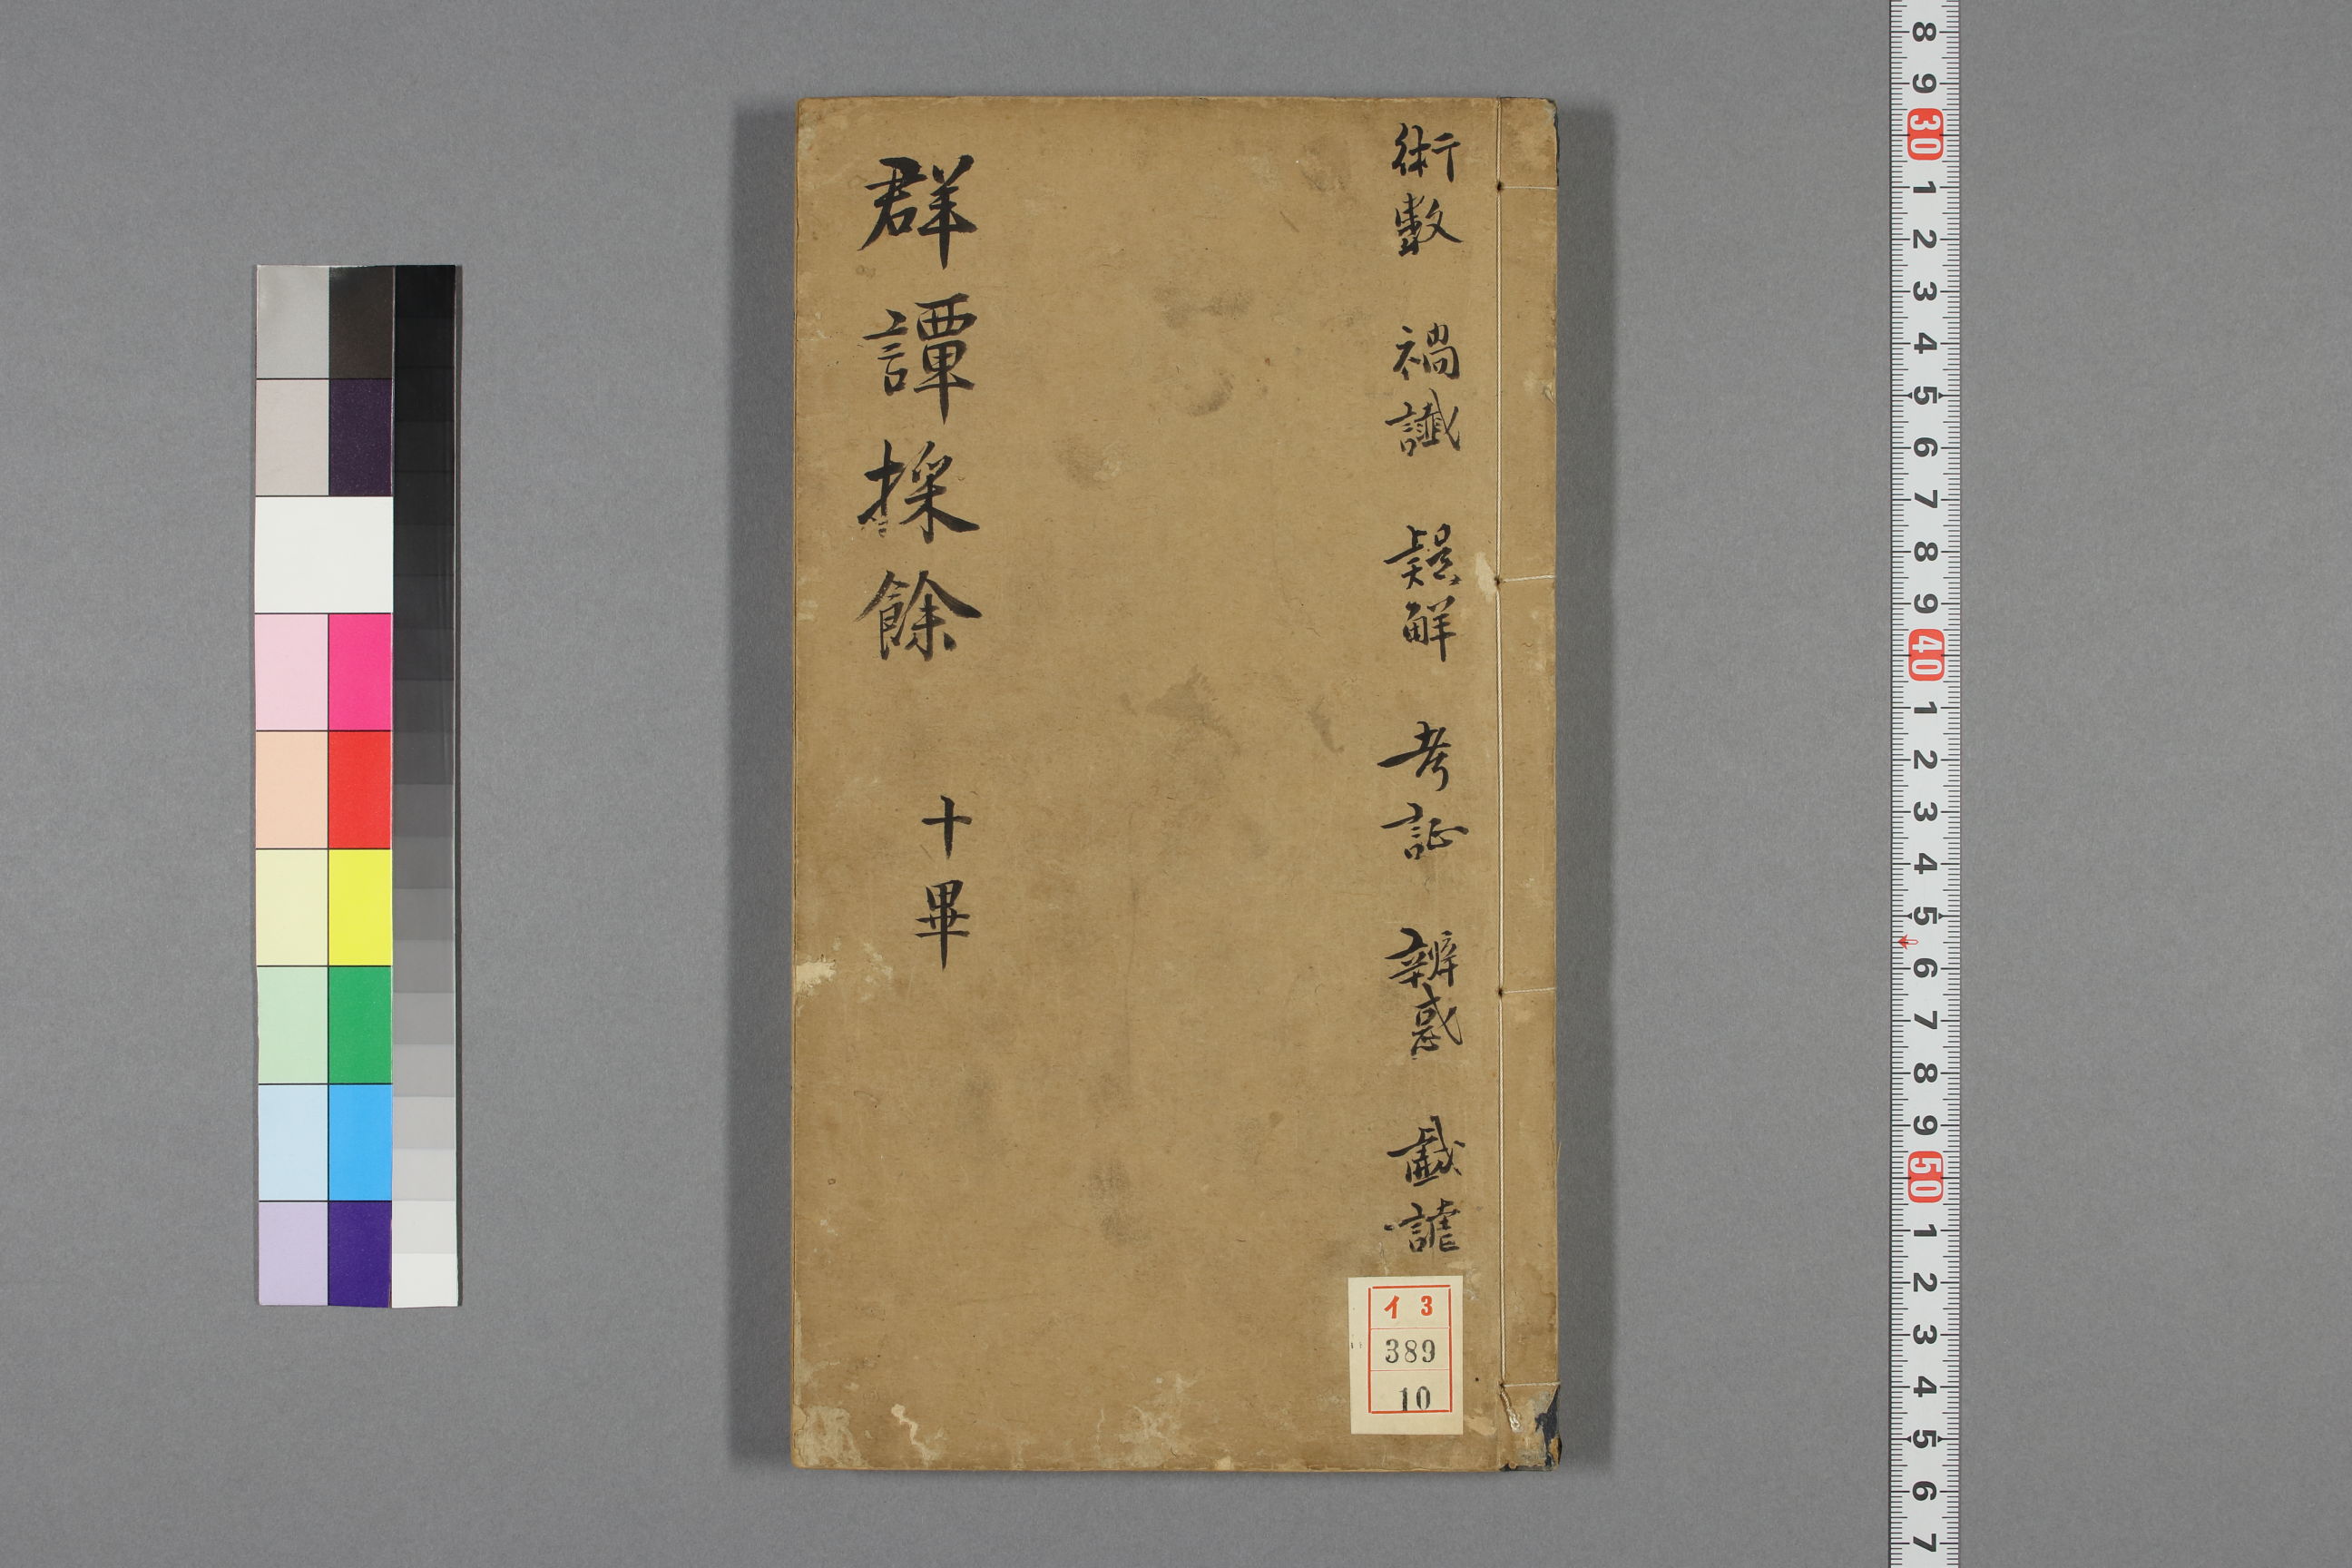 術數 禍讖 疑解 考証 辨惑 戯謔
群譚採餘 十畢
イ 3
389
10
8 9 30 1 2 3 4 5 6 7 8 9 40 1 2 3 4 5 6 7 8 9 50 1 2 3 4 5 6 7